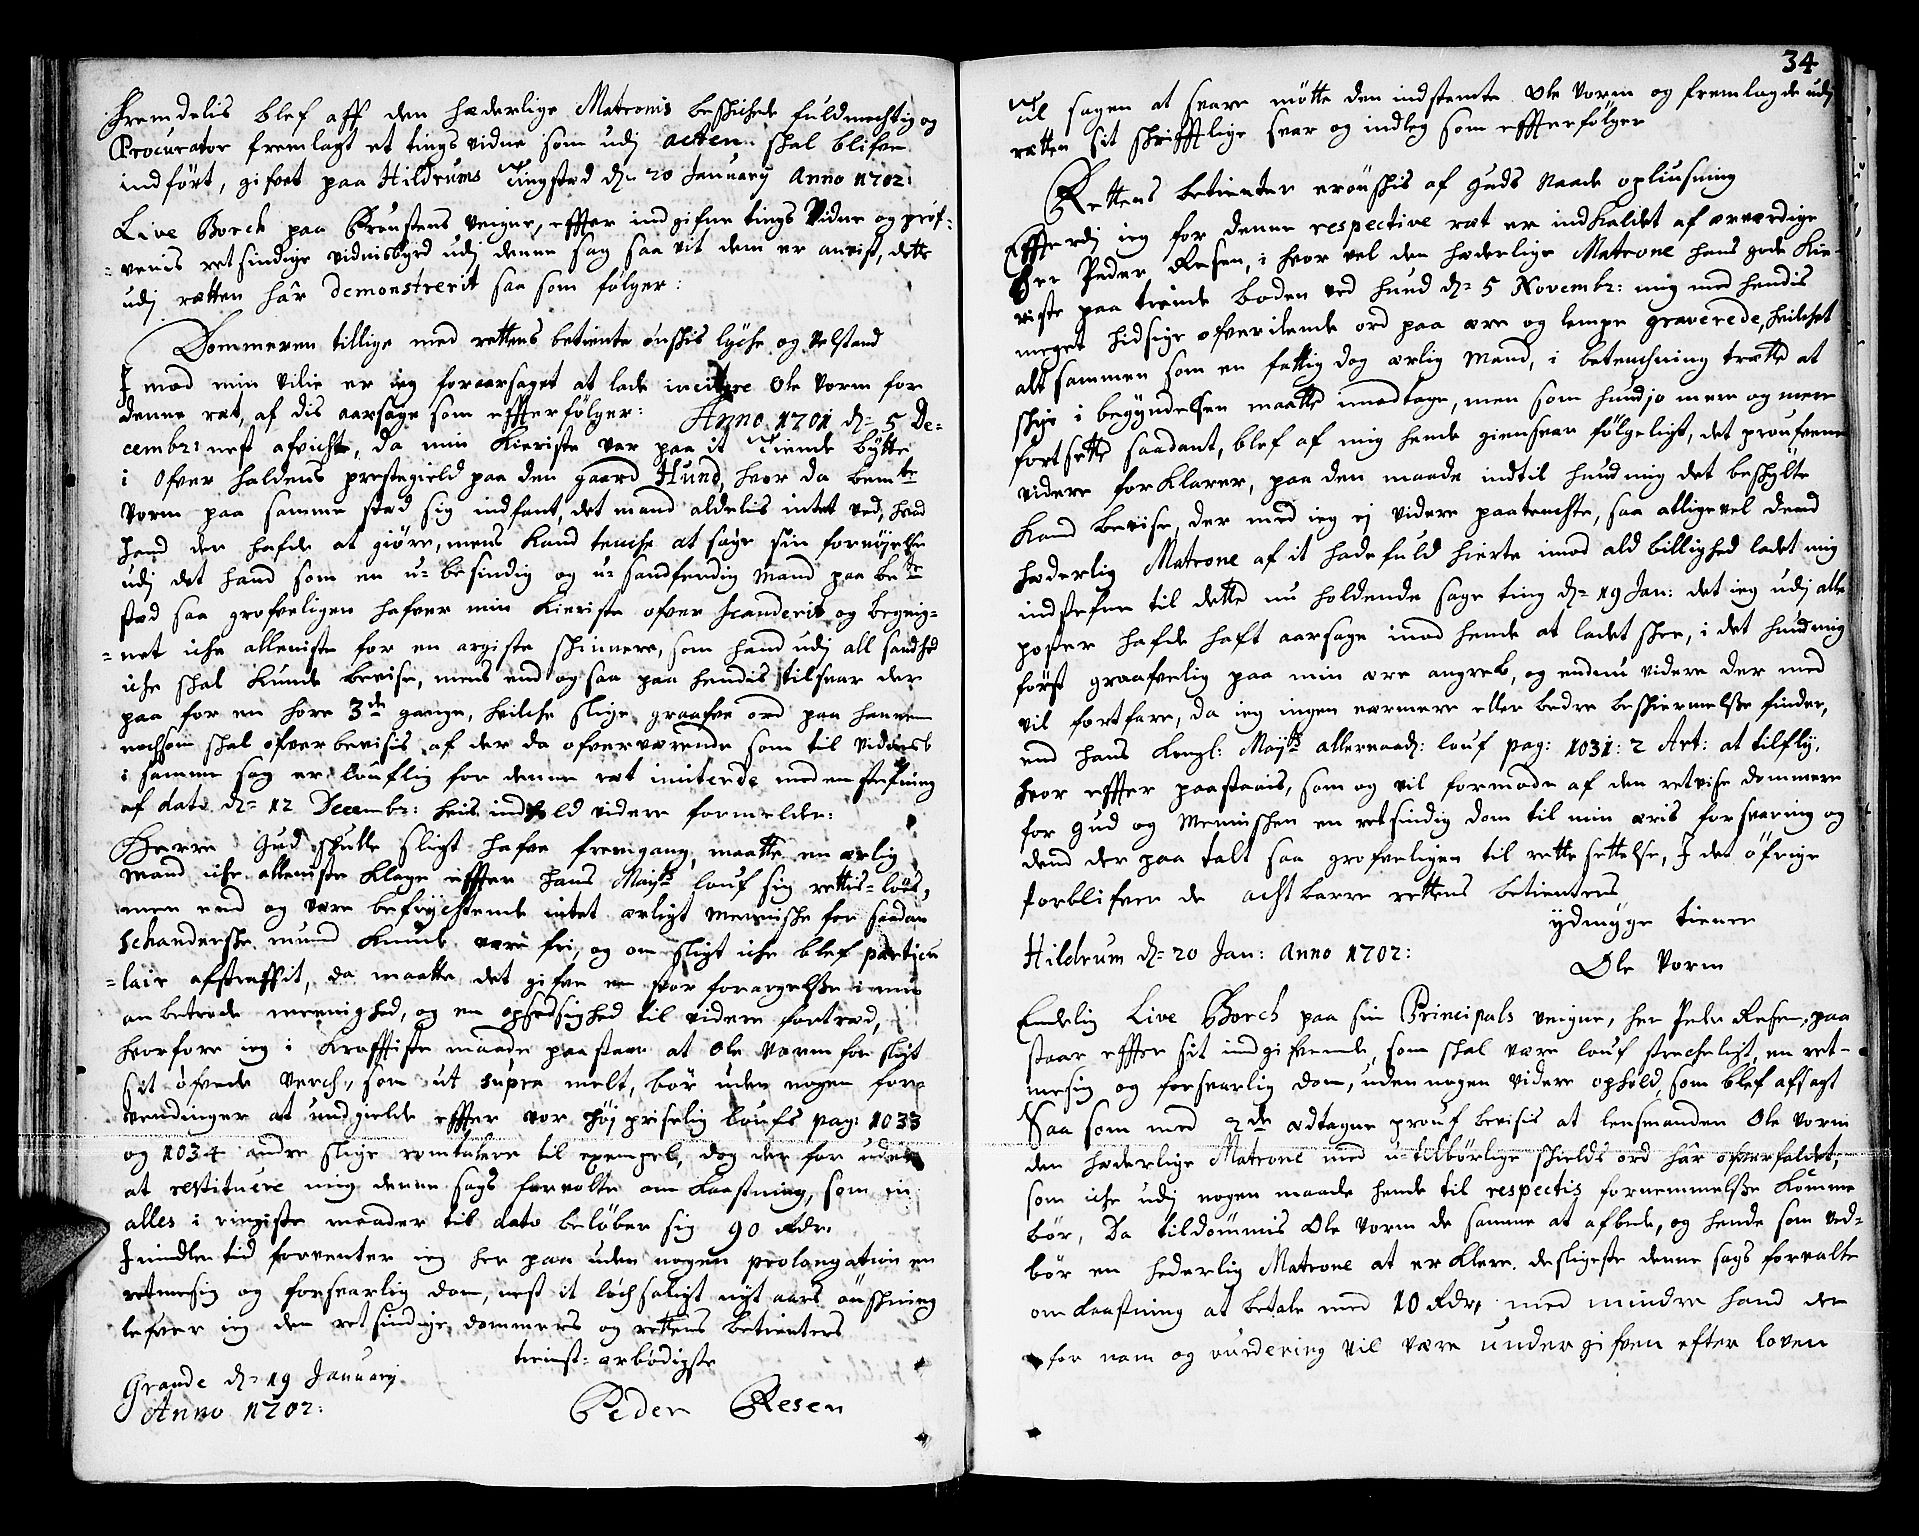 Fremdelis blef aff den hæderlige Matronis beskichede fuldmechtig og
Procurator fremlagt et tingsvidne som udj acten skal blifve
indført, gifvet paa Hildrums Tingsted dn 20 January Anno 1702:
Live Borch paa Prousens veigne, effter indgifne tings Vidne og prof-
=venis retsindige vidnisbyrd udj denne sag saa vit dem er anvist, dette
udj rætten hâr demonstrerit saa som følger:
Dommeren tillige med rettens betiente ønskis lyche og velstand
J mod min vilie er ieg foraarsaget at lade incitere Ole Vorm for
denne ræt, af dis aarsage som effterfølger: Anno 1701 dn 5 De=
cembr: nest afvichte, da min Kieriste var paa it Tiende bytte
i Ofver haldens prestegield paa den gaard Hund, hvor da bemte
Vorm paa samme sted sig indfant, det mand aldelis intet ved, hvad
hand der hafde at giøre, mens kand tenche at søge sin fornøjelse
udj det hand som en u-besindig og u-sandferdig mand paa bete
sted saa grofveligen hafver min Kieriste ofver skanderit og begeig-
=net iche alleniste for en argiste skinnere, som hand udj all sandhed
iche skal kunde bevise, mens end og saa paa hendis tilsvar der
paa for en hore 3de gange, hvilche slige graafve ord paa hannem
nochsom skal ofverbevisis af der da ofverværende som til vidnesb
i samme sag er louflig for denne ret initerde med en stefning
af dato dn 12 Decembr: heis indhold videre formelder:
Herre Gud skulle sligt hafve fremgang, maatte en ærlig
mand iche alleniste klage effter hans Mayts louf sig rettis-løs,
men end og være befrychtende intet ærligt menniske for saadan
schanderske mund kunde være fri, og om sligt iche blef particu
=lair afstraffit, da maatte det gifve en stor forargelse i min
anbetrode menighed, og en opsedsighed til videre fortræd,
hvorfore ieg i krafftiste maade paastaar at Ole Vorm for sligt
sit øfvede verch, som ut supra melt, bør uden nogen fore
vendinger at undgielde effter vor høj priselig loufs pag: 1033
og 1034 andre slige romtalere til exempel, dog der for uden
at restituere mig denne sags forvolte om kaastning, som in
alles i ringiste maader til dato beløber sig 90 Rdr.
Jmidler tid forventer ieg her paa uden nogen prolongation en
retmesig og forsvarlig dom, nest it lychsaligt nyt aars ønskning
lefver ieg den retsindige dommers og rettens betienters
Grande dn 19 January tienst=ærbødigste
Anno 1702: Peder Resen
34
Til sagen at svare møtte den indstemte Ole Vorm og fremlagde udj
retten sit skrifftlige svar og indleg som effterfølger
Rettens betienter erønskis af Guds Naade opliusning
Effterdj ieg for denne respective ræt er indkaldet af ærværdige
Her Peder Resen, i hvor vel den hæderlige Matrone hans gode Kie-
riste paa tiende boden ved Hund dn 5 Novembr: mig med hendis
meget hidsige ofverilende ord paa ære og lempe graverede, hvilchet
alt sammen som en fattig dog ærlig Mand, i betenchning trætte at
skye i begyndelsen maatte imodtage, men som hund jo mere og mere
fortsette saadant, blef af mig hende giensvar følgeligt, det proufvene
videre forklarer, paa den maade indtil hund mig det beskylte
kand bevise, der med ieg ej videre paatenchte, saa alligevel dend
hæderlig Matrone af it hadefuld hierte imod ald billighed ladet mig
indstefne til dette nu holdende sage ting dn 19 Jan: det ieg udj alle
poster hafde haft aarsage imod hende at ladet skee, i det hund mig
først graafvelig paa min ære angreb, og endnu videre der med
vil fortfare, da ieg ingen nærmere eller bedre beskiermelse finder,
end hans Kongl: Mayts allernaad: louf pag: 1031: 2 Art: at tilfly,
hvor effter paastaais, som og vil formode af den retvise dommere
for Gud og Mennisken en retsindig dom til min æris forsvaring og
dend der paa talt saa grofveligen til rette settelse, J det øfrige
forblifver de acht barre rettens betienters
ydmyge tiener
Hildrum dn 20 Jan: Anno 1702: Ole Vorm
Endelig Live Borch paa sin Principals veigne, her Peder Resen, paa
staar effter sit indgifvende, som skal være louf strecheligt, en ret-
mesig og forsvarlig dom, uden nogen videre ophold, som blef afsagt
Saa som med 2de ædtagne prouf bevisis at lensmanden Ole Vorm
den hæderlige Matrone med u-tilbørlige skields ord hâr ofverfaldet,
som iche udj nogen maade hende til respectis fornemmelse komme
bør, Da tildømmis Ole Vorm de samme at afbede, og hende som ved-
bør en hederlig Matrone at erklere. desligeste denne sags forvalte
om kaastning at betale med 10 Rdr, med mindre hand der
for nam og vurdering vil være undergifven efter loven